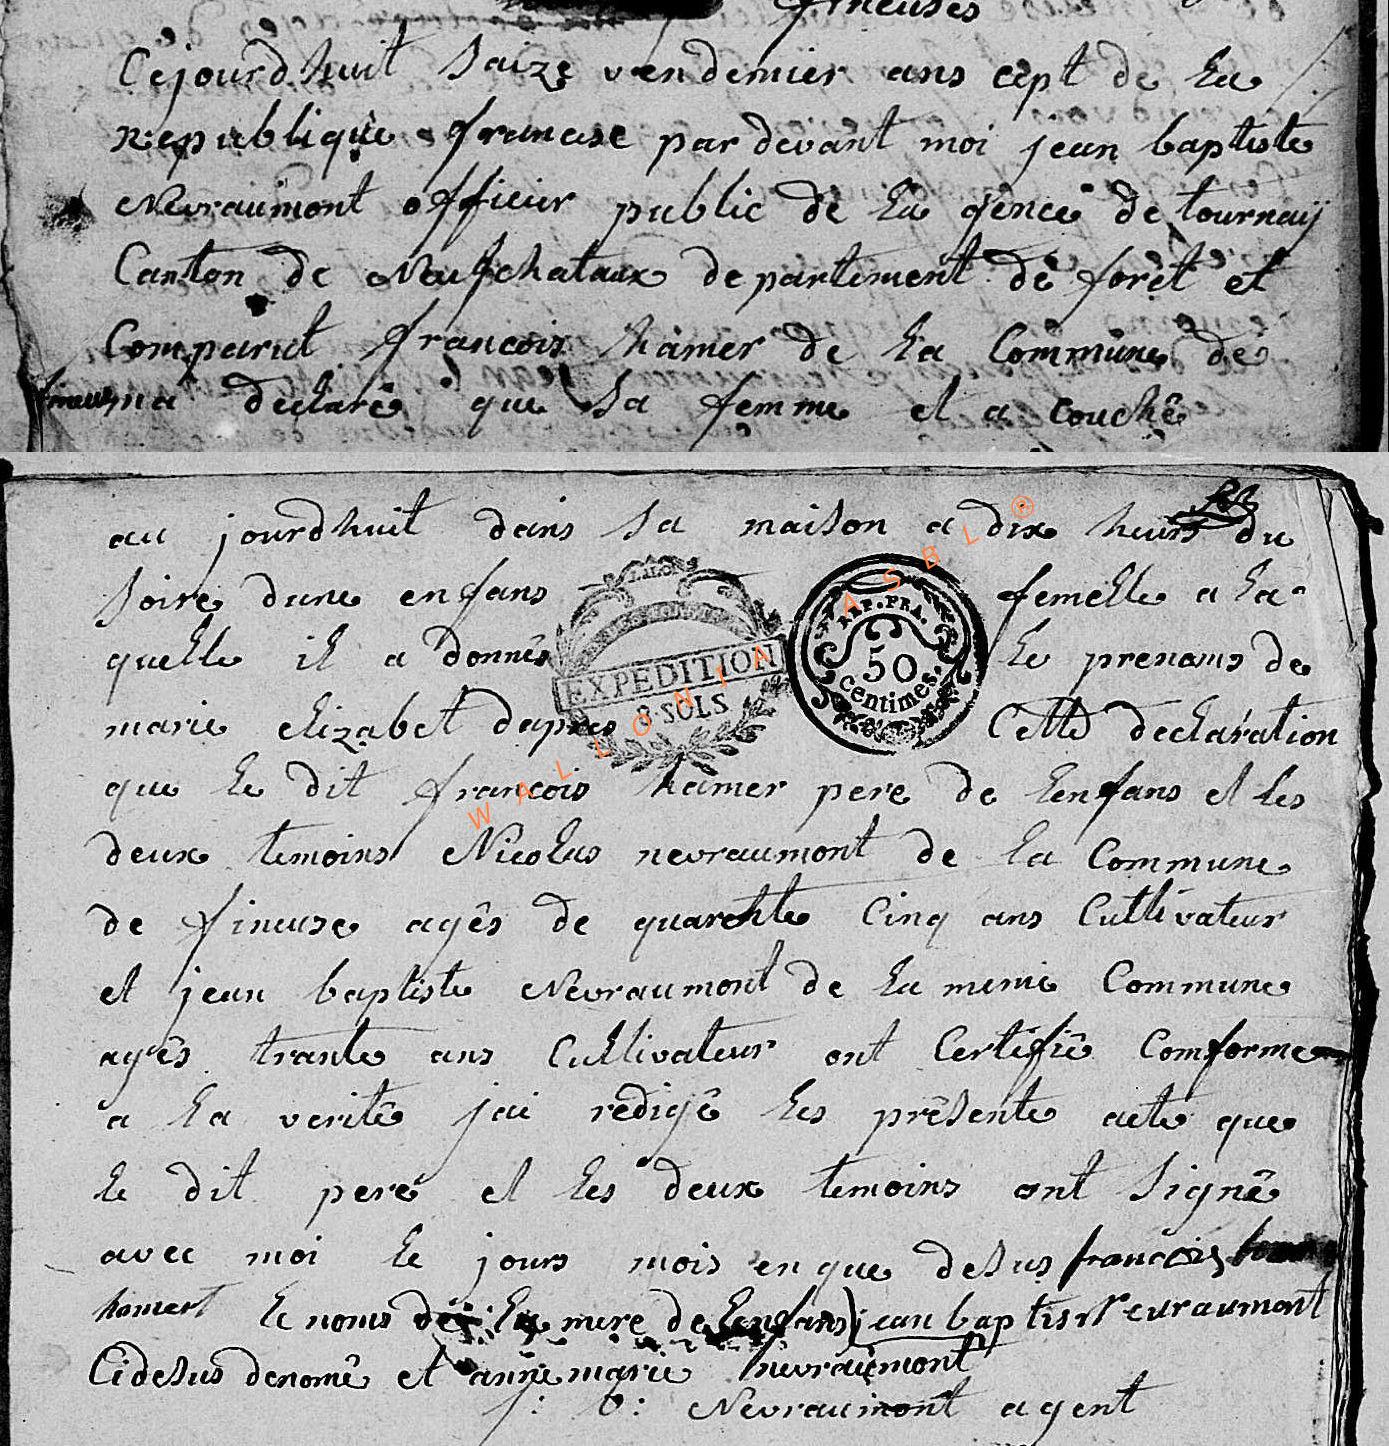 fineuses
Cejourd huit Saize vendemier ans cept de La
republique francise par devant moi jean baptiste
Nevraumont officier public de La gence de tournaÿ
Canton de Neufchataux departement de forêt et
Comparut francois hamer de La Commune de
fineuse ma declarê que Sa femme et a couchê
au jourdhuit dans Sa maison a dix heurs du
Soire dune enfans femelle a La
quelle il a donnês Le prenoms de
marie elizabet dapres Cette declaration
que Le dit francois hamer pere de Lenfans et Les
deux temoins Nicolas nevraumont de La Commune
de fineuse agês de quarente Cinq ans Cultivateur
et jean baptiste Nevraumont de La meme Commune
agês trante ans Cultivateur ont Certifiê Comforme
a La veritê jai redigê Les prêsente acte que
Le dit pere et Les deux temoins ont Signê
avec moi Le jours mois en que desus francois
hamert Le noms de La mere de Lenfans) jean baptist nevraumont
Cidesus denomê et anne marie nevraumont
j: b: Nevraumont agent
EXPEDITION
8 SOLS
REP. FRA.
50
centimes.
WALLONIA ASBL ®